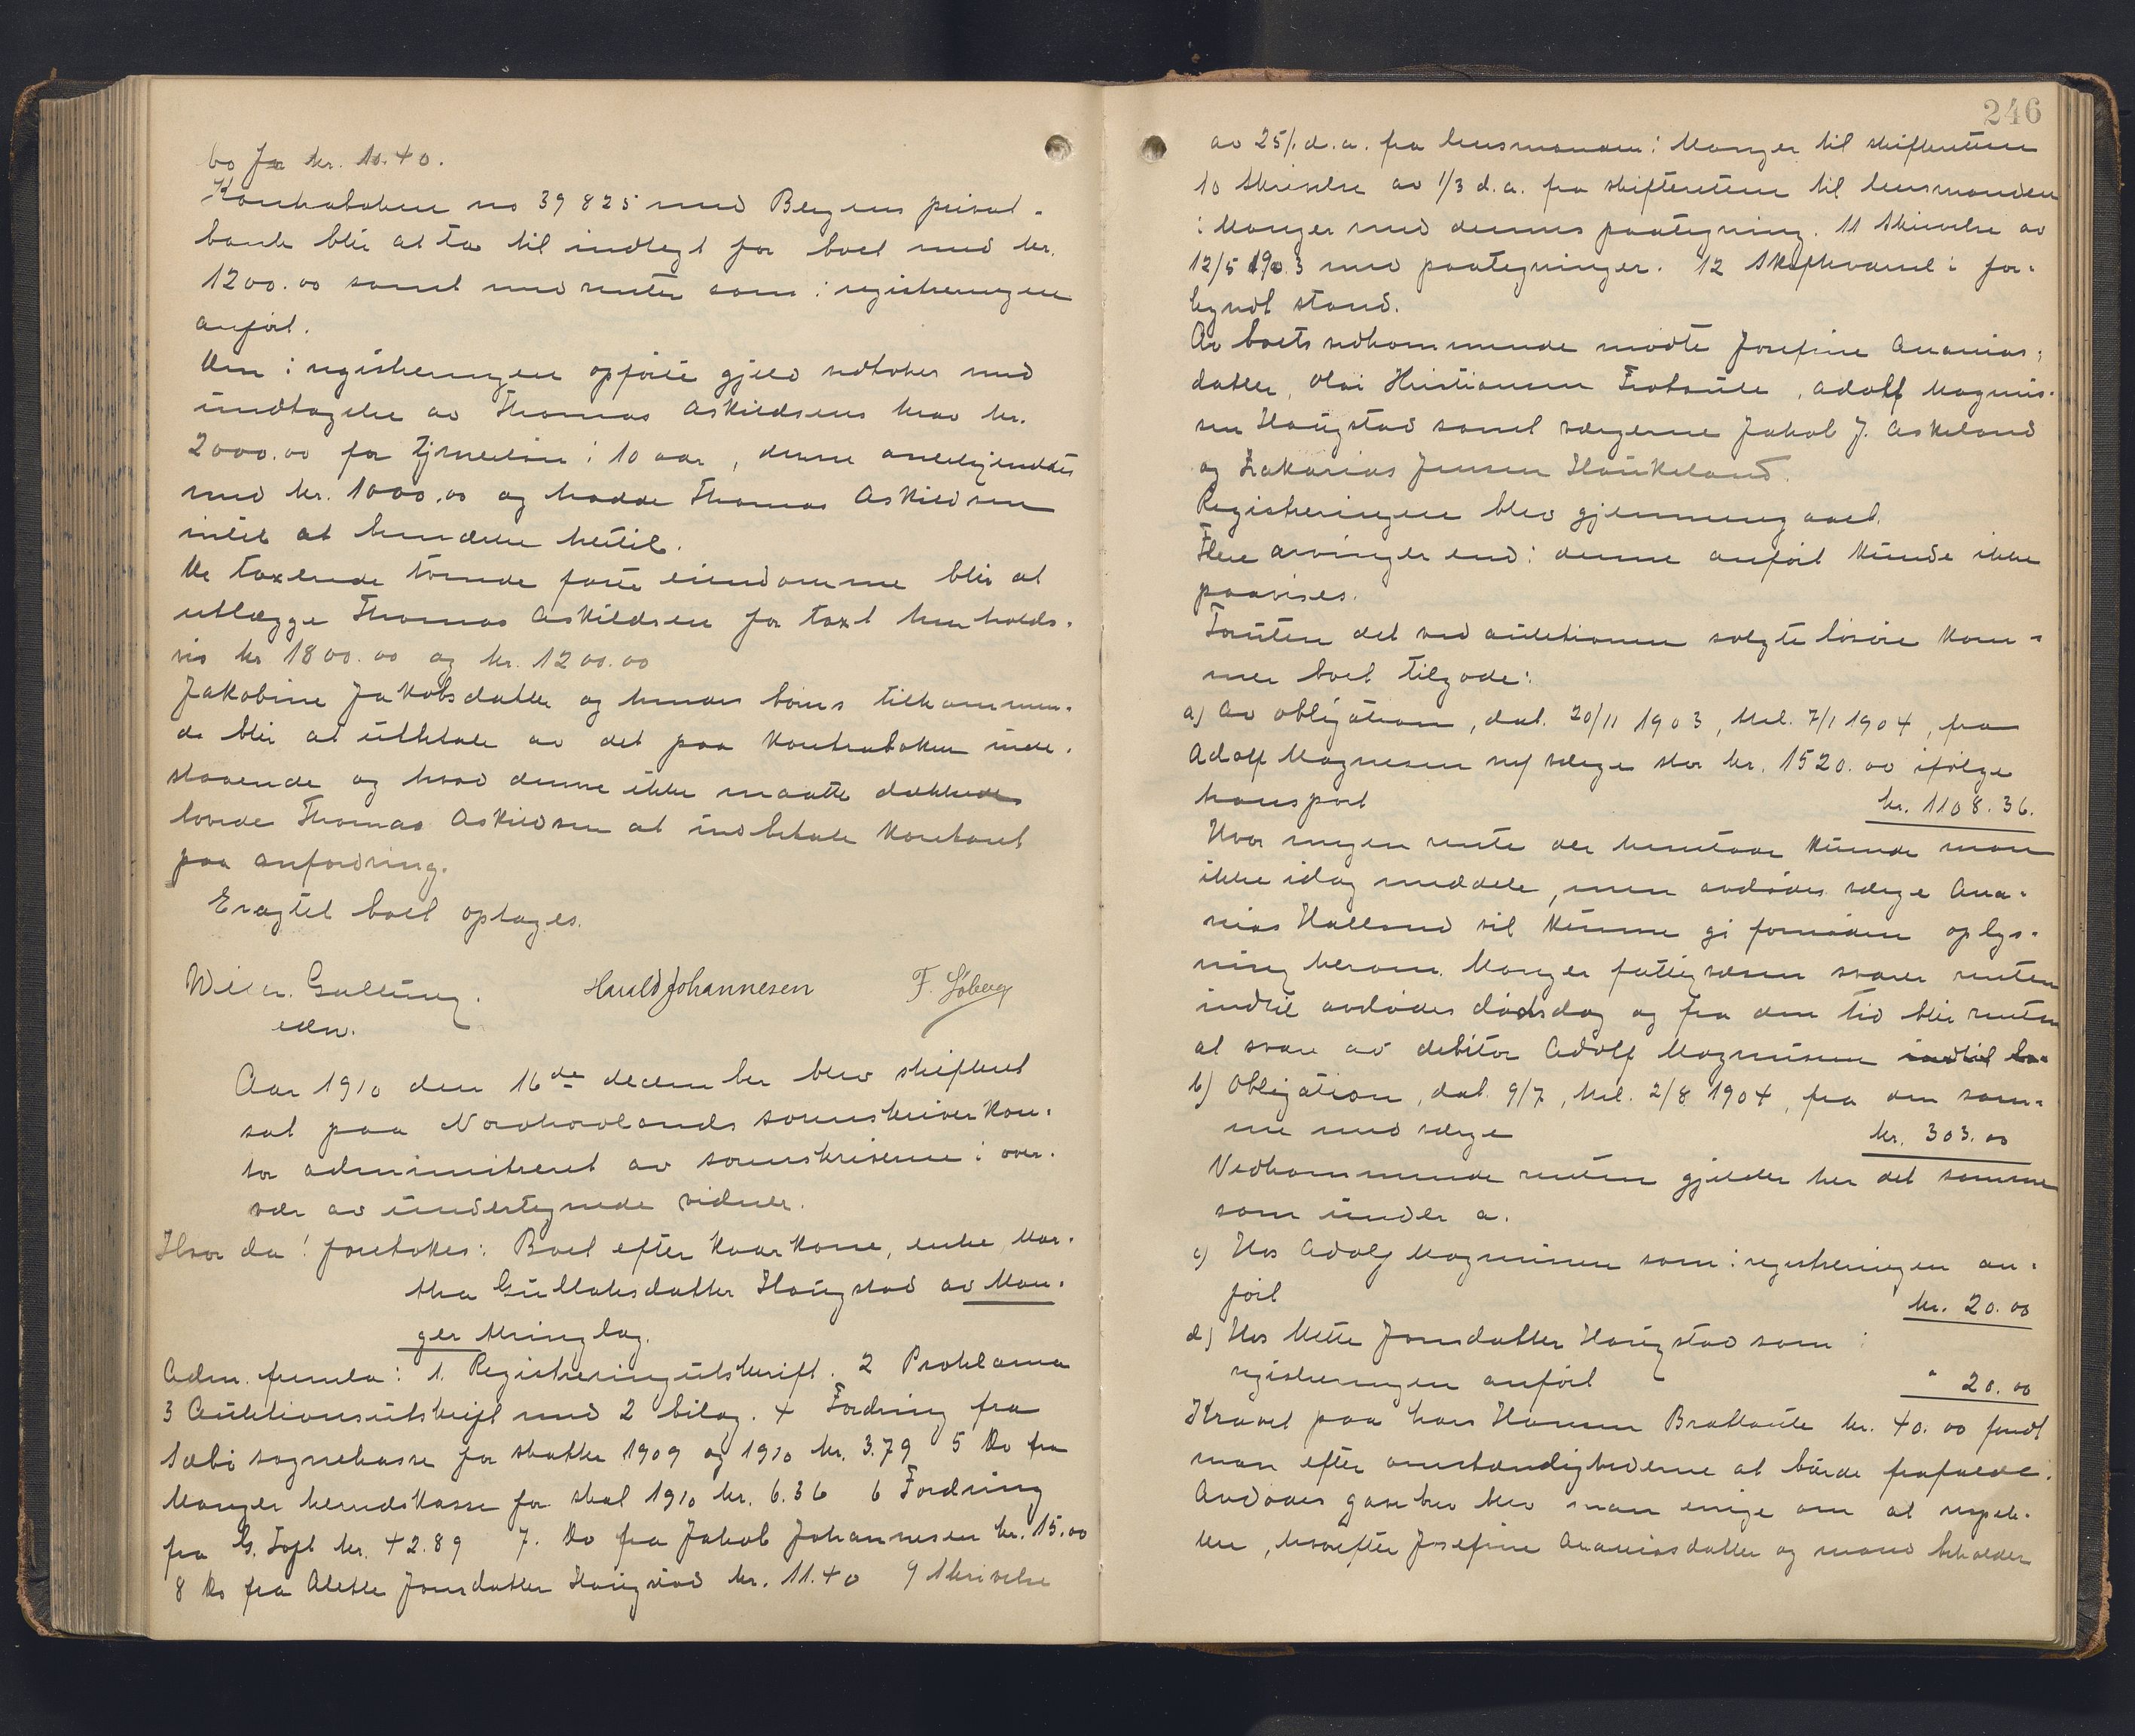 bo for kr. 10.40.
Kontraboken no 39825 med Bergens privat-
bank blir at ta til indtegt for boet med kr.
1200.00 samt med renter som i registreringen
anført.
Den i registreringen opførte gjeld vedtokes med
undtagelse av Thomas Askildsens krav kr.
2000.00 for tjeneløn i 10 aar, denne anerkjendtes
med kr. 1000.00 og hadde Thomas Askildsen
intet at bemerke hertil.
De taxerede  faste eiendomme blir at
utlægge Thomas Askildsen for taxt henholds-
vis kr 1800.00 og kr. 1200.00
Jakobine Jakobsdatter og hendes børns tilkommen-
de blir at utbetale av det paa kontraboken inde-
staaende og hvad denne ikke maatte dækkes
lovede Thomas Askildsen at indbetale kontant
paa anfordring.
Eragtet boet optages.
Willer. Gullung. Harald Johannesen F. Søberg
edsv.
Aar 1910 den 16de december blev skifteret
sat paa Nordhordlands sorenskriverkon-
tor administreret av sorenskriveren i over-
vær av undertegnede vidner.
Hvor da! foretokes: Boet efter kaarkone, enke Mar-
tha Gullaksdatter Haugstad av Man-
ger thinglag.
Adm. fremla: 1. Registreringutskrift. 2 Proklama
3 Auktionsutskrift med 2 bilag. 4 Fordring fra
Sæbø sognekasse for skatter 1909 og 1910 kr. 3.79 5 Do fra
Manger herredskasse for skat 1910 kr. 6.36 6 Fordring
fra G. Toft kr. 42.89 7. Do fra Jakob Johannesen kr. 15.00
8 Do fra Alette Jonsdatter Haugstad kr. 11.40 9 Skrivelse
246
av 25/. d.a. fra lensmanden i Manger til skifteretten
10 Skrivelse av 1/3 d.a. fra skifteretten til lensmanden
i Manger med dennes paategning. 11 Skrivelse av
12/5 1903 med paategninger. 12 Skiftevarsel i for-
kyndt stand.
Av boets vedkommende mødte Josefine Ananias-
datter, Olai Kristiansen , Adolf Magnus-
sen Haugstad samt vergerne Jakob J. Askeland
og Zakarias Jensen Haukeland.
Registreringen blev gjennemgaaet.
Flere arvinger end i denne anført kunde ikke
paavises.
Foruten det ved auktionen solgte løsøre kom-
mer boet tilgode:
a) Av obligation, dat. 20/11 1903, thl. 7/1 1904, fra
Adolf Magnusen m/ verge stor kr. 1520.00 ifølge
transport kr. 1108.36.
Hvor megen rente der henstaar kunde man
ikke idag meddele, men avdødes verge Ana-
nias Halland vil kunne gi fornøden oplys-
ning herom. Manger fattigvæsen svarer renten
indtil avdødes dødsdag og fra den tid blir renten
at svare av debitor Adolf Magnusen indtil be-
b) Obligation, dat. 9/7, thl. 2/8 1904, fra den sam-
me med verge kr. 303.00
Vedkommende renten gjelder her det samme
som under a.
c) Hos Adolf Magnusen som i registreringen an-
ført kr. 20.00
d) Hos Mette Jonsdatter Haugstad som i
registreringen anført " 20.00
Kravet paa Lars Hansen  kr. 40.00 fandt
man efter omstændighederne at burde frafalde.
Avdødes gavebrev blev man enige om at respek-
tere, hvorefter Josefine Ananiasdatter og mand beholder